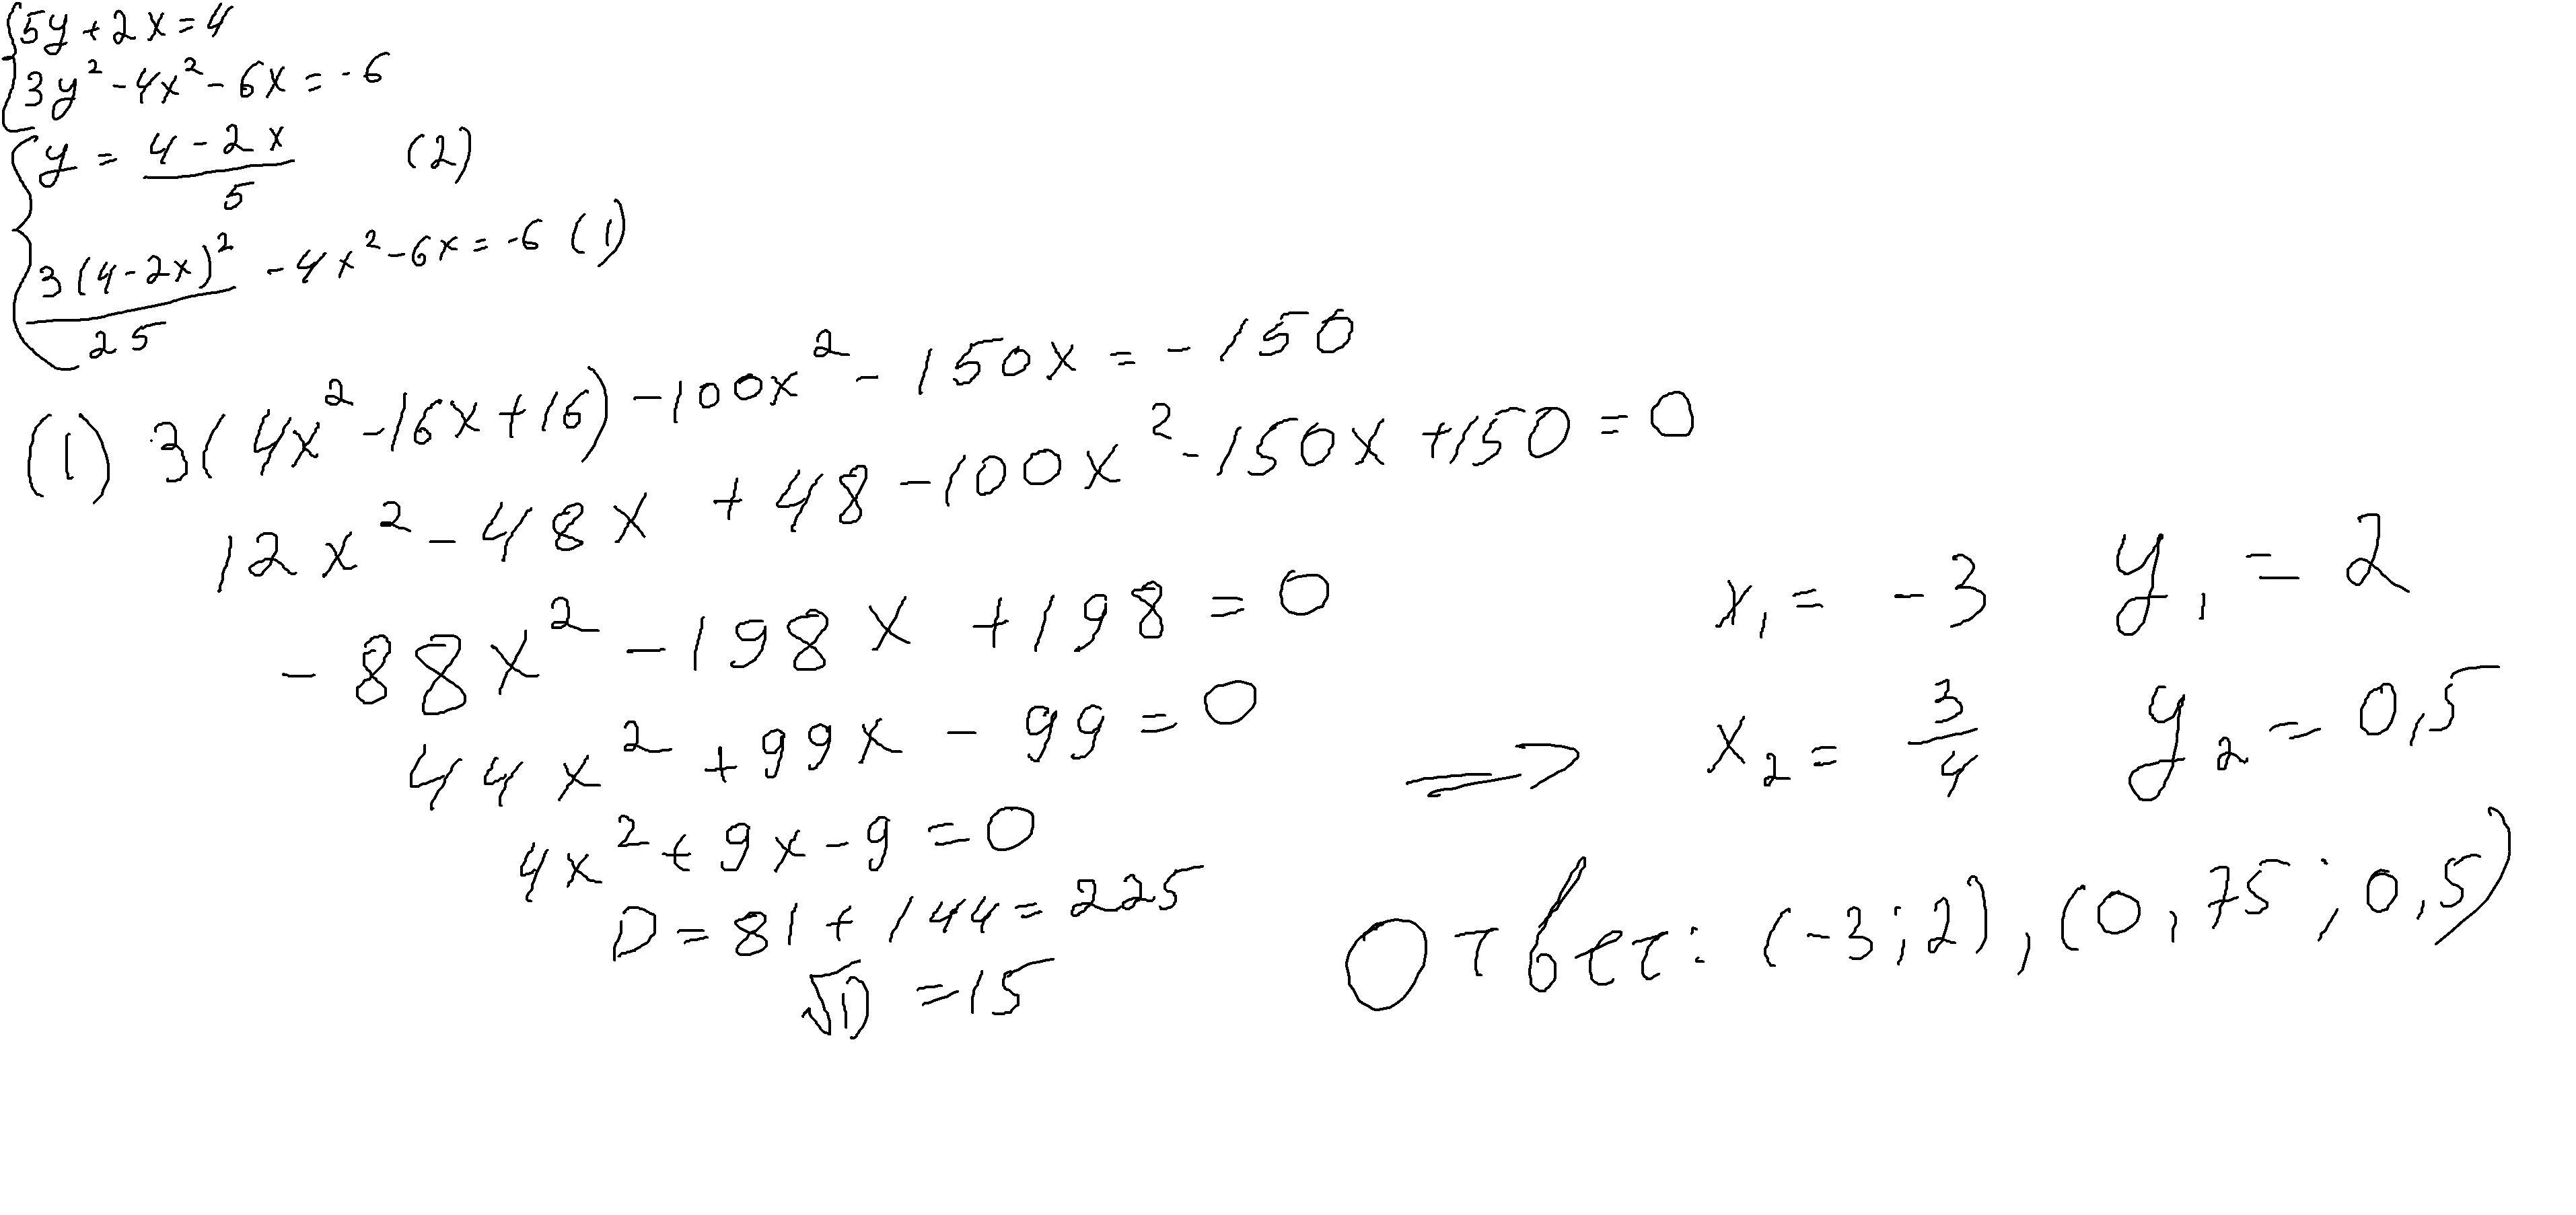 {5y + 2x = 4
3y² - 4x² - 6x = -6
{y = (4 - 2x)/5 (2)
3(4-2x)²/25 - 4x² - 6x = -6 (1)
(1) 3(4x² - 16x + 16) - 100x² - 150x = -150
12x² - 48x + 48 - 100x² - 150x + 150 = 0
-88x² - 198x + 198 = 0
44x² + 99x - 99 = 0
4x² + 9x - 9 = 0
D = 81 + 144 = 225
√D = 15
⇒
x₁ = -3 y₁ = 2
x₂ = 3/4 y₂ = 0,5
Ответ: (-3; 2), (0,75; 0,5)